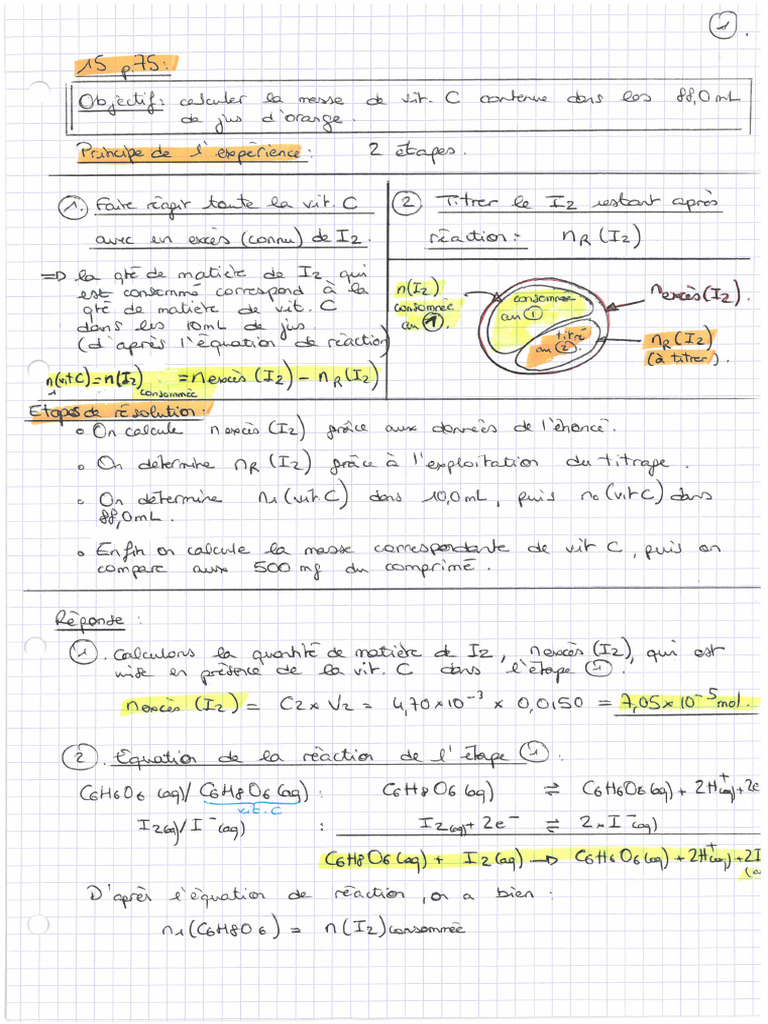 1.
15 p.75:
Objectif: calculer la masse de vit. C contenue dans les 88,0mL
de jus d'orange.
Principe de l'expérience: 2 étapes.
① Faire réagir toute la vit. C
avec en excès (connu) de I2.
=D la qté de matière de I2 qui
est consommé correspond à la
qté de matière de vit. C
dans les 10mL de jus
(d'après l'équation de réaction)
n1(vit C) = n(I2) consommée = nexcès (I2) – nR (I2)
② Titrer le I2 restant après
réaction: nR (I2)
n(I2)
consommée
au ①.
consommée
au ①
titré
au ②.
nexcès (I2).
nR (I2)
(à titrer).
Etapes de résolution:
• On calcule nexcès (I2) grâce aux données de l'énoncé.
• On détermine nR (I2) grâce à l'exploitation du titrage.
• On détermine n1 (vit C) dans 10,0mL, puis n0 (vit C) dans
88,0mL.
• Enfin on calcule la masse correspondante de vit C, puis on
compare aux 500 mg du comprimé.
Réponse:
① Calculons la quantité de matière de I2, nexcès (I2), qui est
mise en présence de la vit. C dans l'étape ①.
nexcès (I2) = C2 x V2 = 4,70 x 10⁻³ x 0,0150 = 7,05 x 10⁻⁵ mol.
② Equation de la réaction de l'étape ①:
C6H6O6 (aq) / C6H8O6 (aq): C6H8O6 (aq) ⇌ C6H6O6 (aq) + 2H⁺(aq) + 2e
vit. C
I2(aq) / I⁻(aq) : I2(aq) + 2e⁻ ⇌ 2 x I⁻(aq)
C6H8O6 (aq) + I2 (aq) —> C6H6O6 (aq) + 2H⁺(aq) + 2I
D'après l'équation de réaction, on a bien:
n1 (C6H8O6) = n (I2) consommée